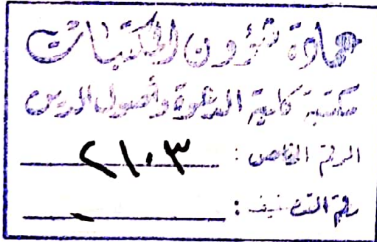 عمادة شؤون المكتبات
مكتبة كلية الدعوة وأصول الدين
الرقم الخاص : ٢١٠٣
رقم التصنيف :